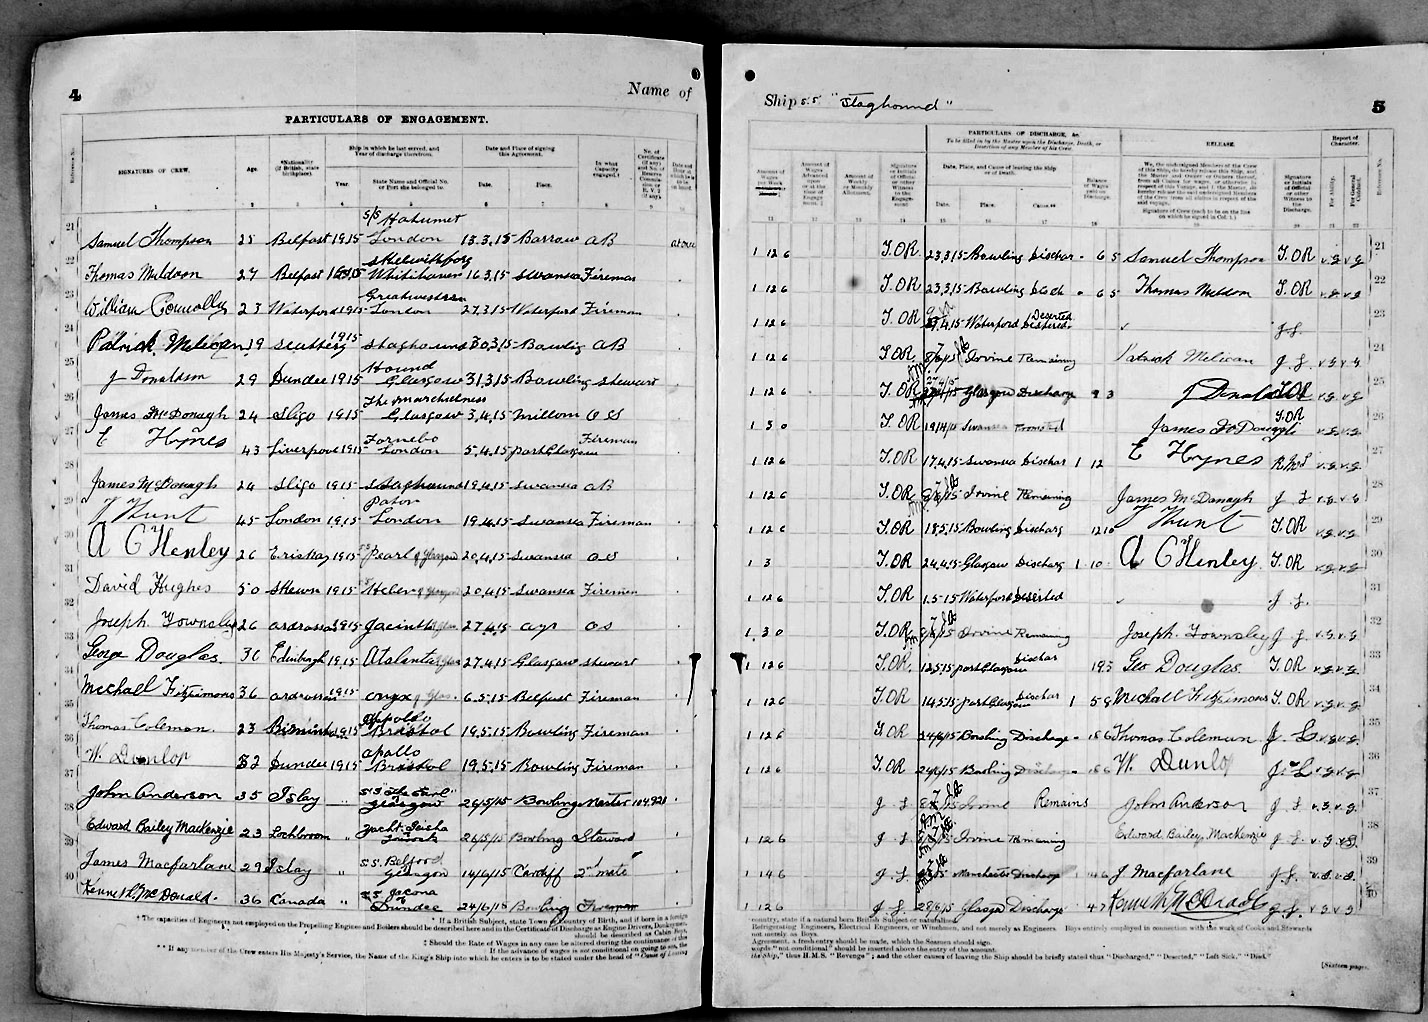 4
Name of
PARTICULARS OF ENGAGEMENT.
Reference No.
SIGNATURES OF CREW.
Age.
*Nationality (if British, state birthplace).
Ship in which he last served, and Year of discharge therefrom.
Year.
State Name and Official No. or Port she belonged to.
Date and Place of signing this Agreement.
Date.
Place.
In what Capacity engaged.
1 2 3 4 5 6 7 8 9 10
21 Samuel Thompson 25 Belfast 1915 S/S Hahumet London 13.3.15 Barrow AB above
22 Thomas Muldoon 27 Belfast 1915 Skelwithforce Whitehaven 16.3.15 Swansea Fireman
23 William Connolly 23 Waterford 1915 Great western London 27.3.15 Waterford Fireman
24 Patrick Melican 19 Scattery 1915 Staghound 30.3.15 Bowling AB
25 J Donaldson 29 Dundee 1915 Hound Glasgow 31.3.15 Bowling Stewart
26 James McDonagh 24 Sligo 1915 The Marchioness Glasgow 3.4.15 Millom OS
27 E Hynes 43 Liverpool 1915 Fornebo London 5.4.15 Port Glasgow Fireman
28 James McDonagh 24 Sligo 1915 Staghound 19.4.15 Swansea AB
29 J Hunt 45 London 1915 London 19.4.15 Swansea Fireman
30 A C Henley 26 Eriskay 1915 Pearl of Glasgow 20.4.15 Swansea OS
31 David Hughes 50 Skewen 1915 Helen of Glasgow 20.4.15 Swansea Firemen
32 Joseph Townsley 26 Ardrossan 1915 Jacinth Glas. 27.4.15 Ayr OS
33 George Douglas. 30 Edinburgh 1915 Atalanta Glas 27.4.15 Glasgow Stewart
34 Michall Fitzsimons 36 Ardrossan 1915 Onyx of Glas. 6.5.15 Belfast Fireman
35 Thomas Coleman. 23 1915 Apollo Bristol 19.5.15 Bowling Fireman
36 W. Dunlop 32 Dundee 1915 Apollo Bristol 19.5.15 Bowling Fireman
37 John Anderson 35 Islay " Glasgow 26/5/15 Bowling Master 104,921
38 Edward Bailey MacKenzie 23 Lochbroom " Yacht. Geisha 26/5/15 Bowling Steward
39 James Macfarlane 29 Islay " S.S. Belford Glasgow 14/6/15 Cardiff 2nd mate
40 Kenneth McDonald. 36 Canada " S.S. Jacona Dundee 24/6/15 Bowling Fireman
† The capacities of Engineers not employed on the Propelling Engines and Boilers should be described here and in the Certificate of Discharge as Engine Drivers, Donkeymen,
* If a British Subject, state Town or Country of Birth, and if born in a foreign
should be described as Cabin Boys.
‡ Should the Rate of Wages in any case be altered during the continuance of this
If the advance of wages is not conditional on going to sea, the
** If any member of the Crew enters His Majesty's Service, the Name of the King's Ship into which he enters is to be stated under the head of "Cause of Leaving
Ship S.S "Staghound"
5
PARTICULARS OF DISCHARGE, &c.
To be filled in by the Master upon the Discharge, Death, or Desertion of any Member of his Crew.
RELEASE.
Report of Character.
Amount of Wages Advanced upon or at the time of Engagement.
Amount of Weekly or Monthly Allotment.
Signature or Initials of Official or other Witness to the Engagement
Date, Place, and Cause of leaving the Ship or of Death.
Date.
Place.
Cause**
Balance of Wages paid on Discharge.
We, the undersigned Members of the Crew of this Ship, do hereby release this Ship, and the Master and Owner or Owners thereof, from all Claims for wages, or otherwise in respect of this Voyage, and I, the Master, do hereby release the said undersigned Members of the Crew from all claims in respect of the said voyage.
Signature of Crew (each to be on the line on which he signed in Col. 1.)
Signature or Initials of Official or other Witness to the Discharge.
For Ability.
For General Conduct.
Reference No.
1 12 6 T. OR 23.3.15 Bowling Dischar 6 5 Samuel Thompson T. OR v.g v.g 21
1 12 6 T. OR 23.3.15 Bowling 6 5 Thomas Muldon T. OR v.g v.g 22
1 12 6 T. OR Waterford Deserted 23
1 12 6 T. OR Irvine Remaining Patrick Melican J. L v.g v.g 24
1 12 6 T. OR Glasgow Discharge 9 3 J Donaldson T. OR v.g v.g 25
1 3 0 T. OR 19/4/15 Swansea Promoted James McDonagh T. OR v.g v.g 26
1 12 6 T. OR 17.4.15 Swansea Dischar 1 12 E Hynes v.g v.g 27
1 12 6 T. OR Irvine Remaining James McDonagh J L v.g v.g 28
1 12 6 T. OR 18.5.15 Bowling Discharg J Hunt T. OR v.g v.g 29
1 3 T. OR 24.4.15 Glasgow Discharg 1 10 A C Henley. T. OR v.g v.g 30
1 12 6 T. OR 1.5.15 Waterford Deserted J. L. 31
1 3 0 T. OR Irvine Remaining Joseph Townsley J. L v.g v.g 32
1 12 6 T. OR. 12.5.15 Port Glasgow Dischar Geo Douglas. T. OR v.g v.g 33
1 12 6 T. OR 14.5.15 Port Glasgow Dischar 1 Michall Fitzsimons T. OR v.g v.g 34
1 12 6 T. OR 24/6/15 Bowling Discharge Thomas Coleman J. L v.g v.g 35
1 12 6 T. OR 24/6/15 Bowling Discharge W. Dunlop J. L v.g v.g 36
J. L Irvine Remains John Anderson J. L v.g. v.g. 37
1 12 6 J. L Irvine Remaining Edward. Bailey. MacKenzie J. L v.g v.g 38
1 14 6 J. L Manchester Discharge J. Macfarlane J. L v.g. v.g. 39
1 12 6 J. L 28/6/15 Glasgow Discharge 4 Kenneth McDonald J. L v.g v.g 40
country, state if a natural born British Subject or naturalised.
Refrigerating Engineers, Electrical Engineers, or Winchmen, and not merely as Engineers. Boys entirely employed in connection with the work of Cooks and Stewards
not merely as Boys.
Agreement, a fresh entry should be made, which the Seamen should sign.
words "not conditional" should be inserted above the entry of the amount.
the Ship," thus H.M.S. "Revenge"; and the other causes of leaving the Ship should be briefly stated thus "Discharged," "Deserted," "Left Sick," "Died."
[Sixteen pages.